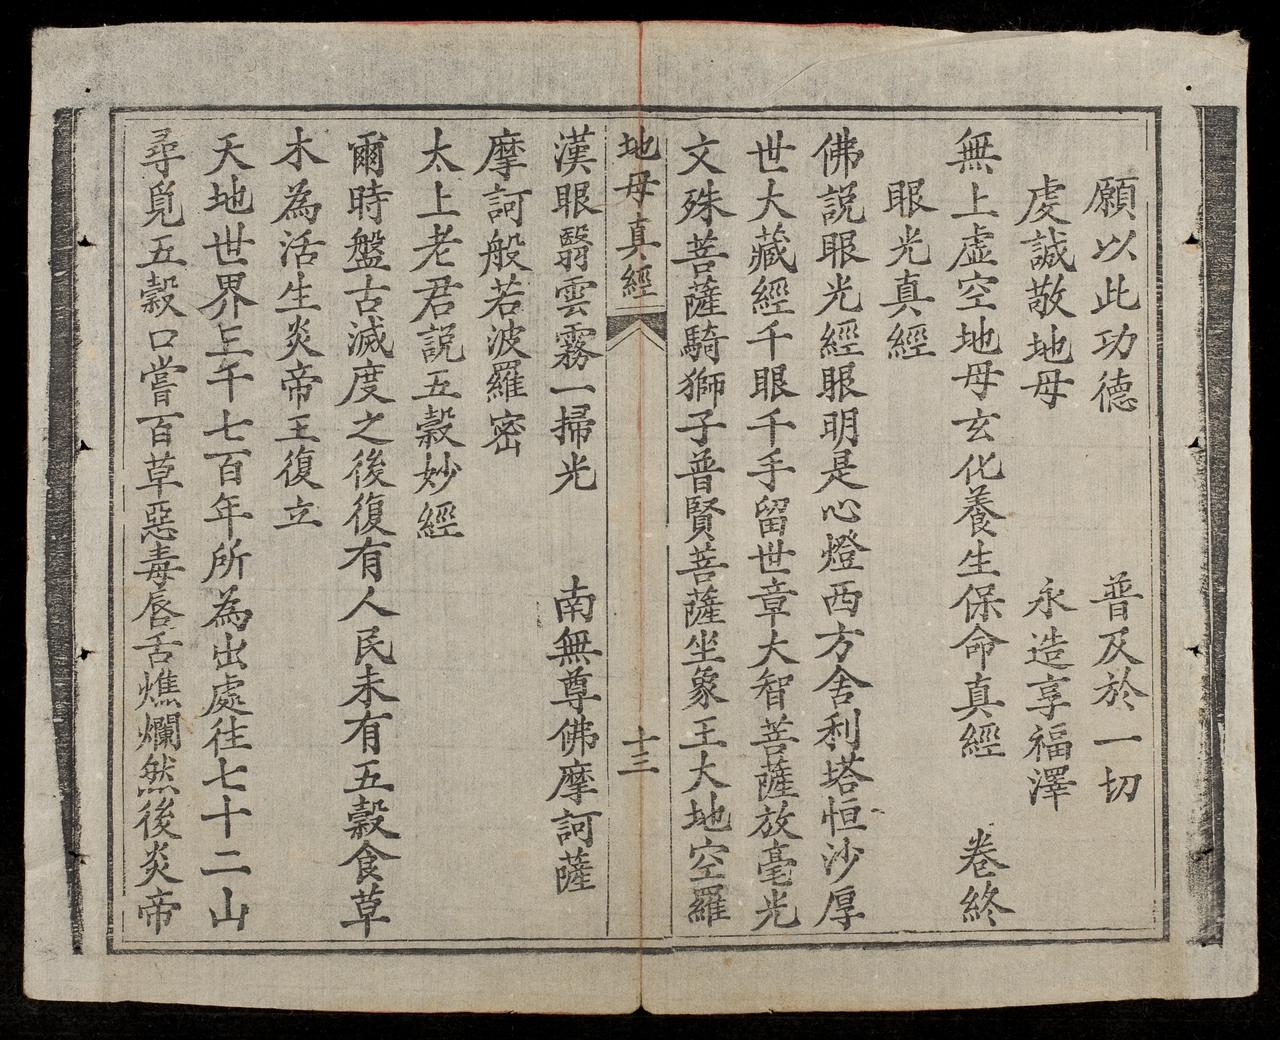 願以此功德　普及於一切
虔誠敬地母　永造享福澤
無上虛空地母玄化養生保命真經　卷終
眼光真經
佛説眼光經眼明是心燈西方舍利塔恒沙厚
世大藏經千眼千手留世章大智菩薩放毫光
文殊菩薩騎獅子普賢菩薩坐象王大地空羅
地母真經　十三
漢眼翳雲霧一掃光　南無尊佛摩訶薩
摩訶般若波羅密
太上老君説五穀妙經
爾時盤古滅度之後復有人民未有五穀食草
木為活生炎帝王復立
天地世界三千七百年所為出處往七十二山
尋覓五穀口嘗百草惡毒唇舌燋爛然後炎帝